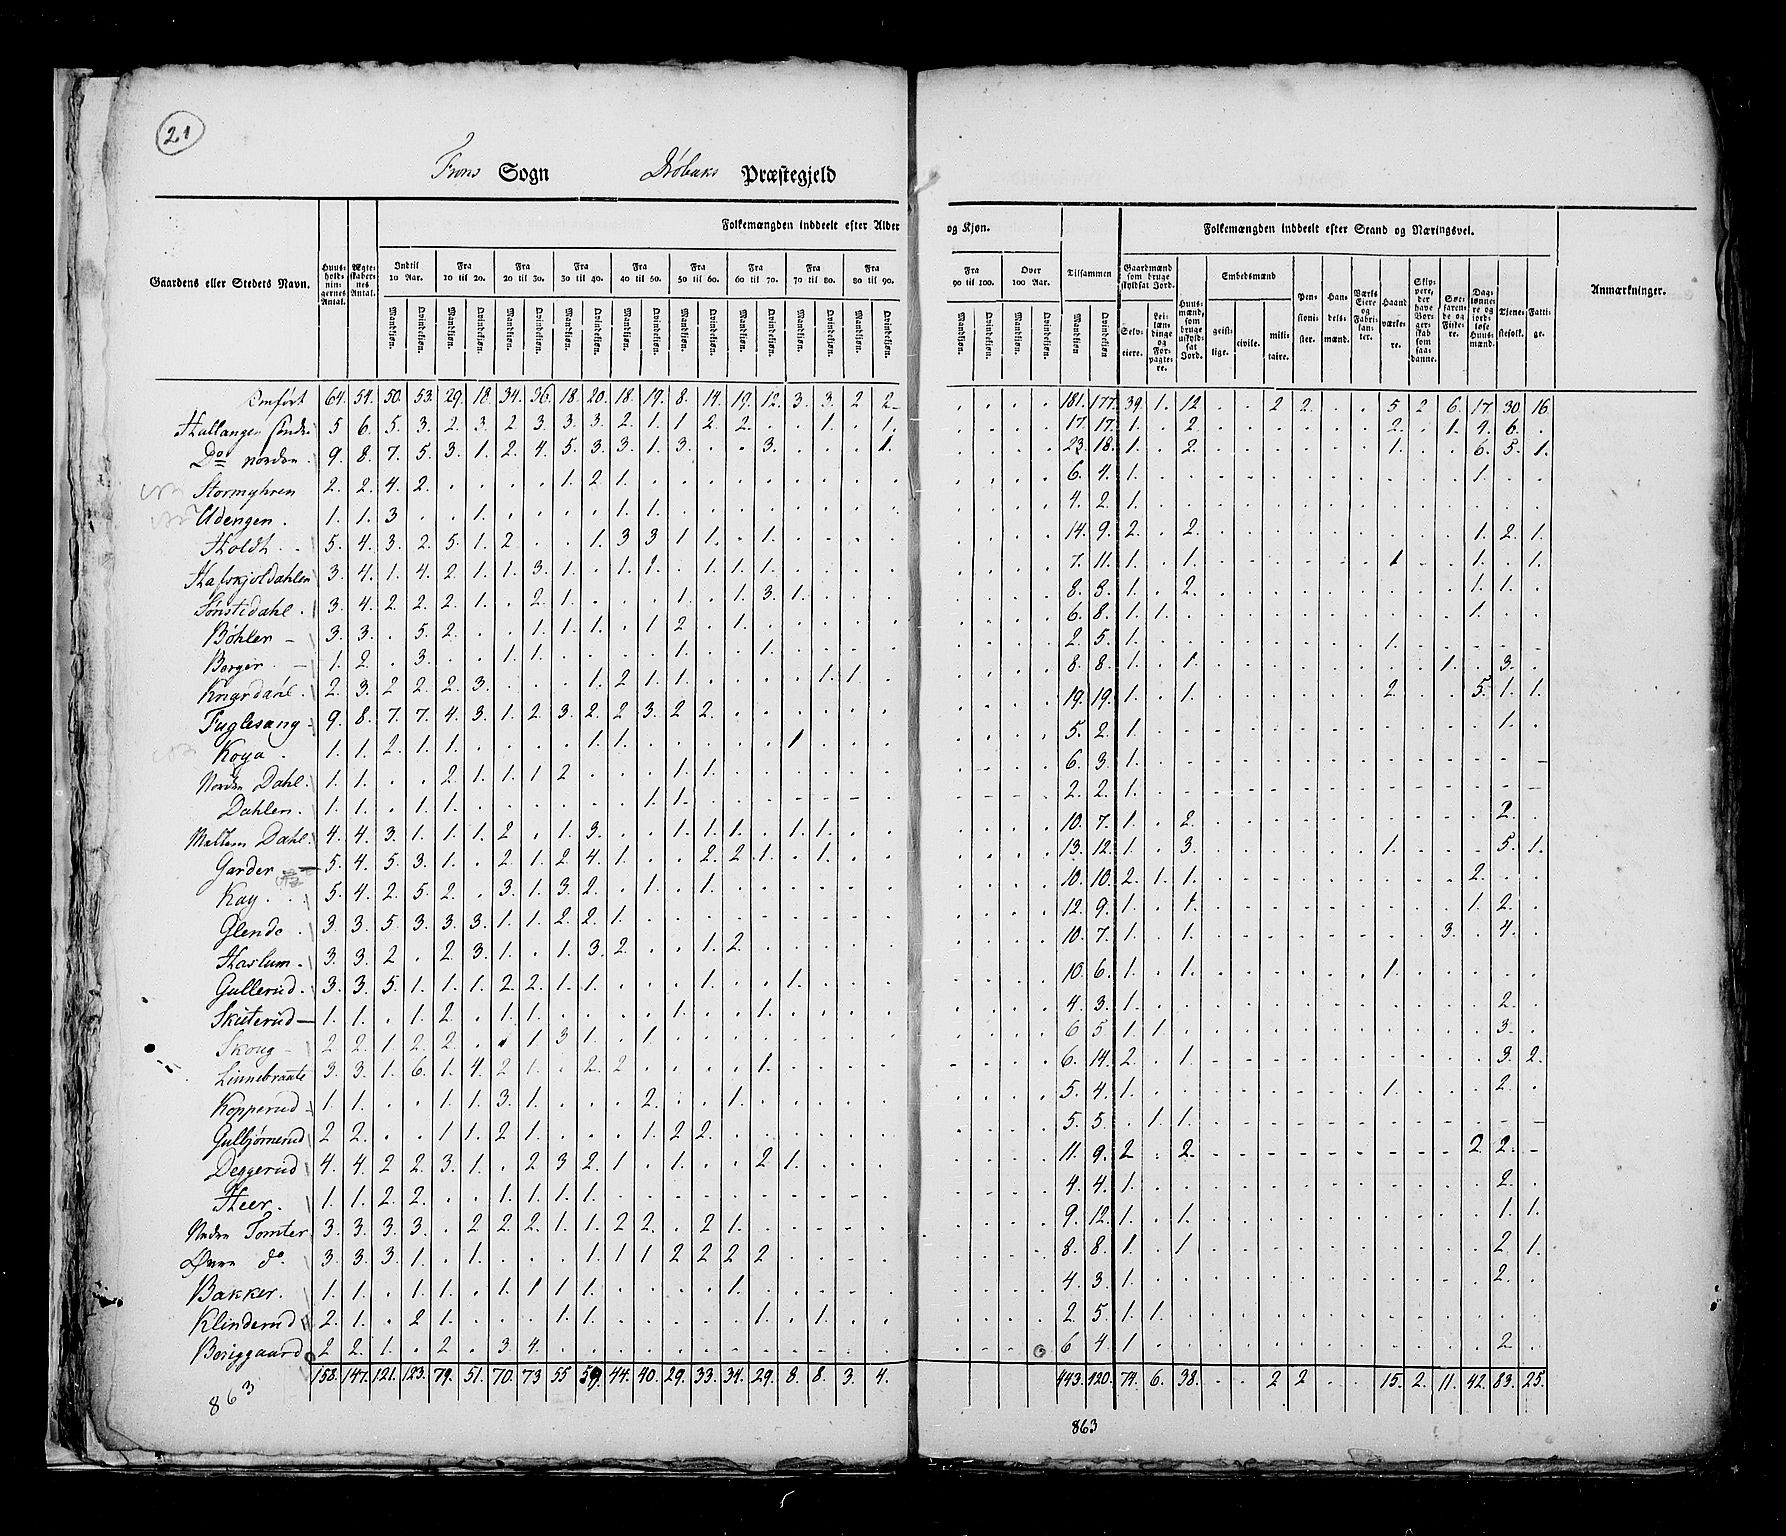 21
Frons Sogn Drøbaks Præstegjeld
Folkemængden inddeelt efter Alder og Kjøn.
Folkemængden inddeelt efter Stand og Næringsvei.
Gaardens eller Stedets Navn.
Huusholdningernes Antal.
Ægteskabernes Antal.
Indtil 10 Aar.
Fra 10 til 20.
Fra 20 til 30.
Fra 30 til 40.
Fra 40 til 50.
Fra 50 til 60.
Fra 60 til 70.
Fra 70 til 80.
Fra 80 til 90.
Fra 90 til 100.
Over 100 Aar.
Tilsammen
Mandkjøn. Qvindekjøn.
Gaardmænd som bruge skyldsat Jord.
Selveiere.
Leilændinge og Forpagtere.
Huusmænd, som bruge uskyldsat Jord.
Embedsmænd
geistlige.
civile.
militaire.
Pensionister.
Handelsmænd.
Værks Eiere og Fabrikanter.
Haandværkere.
Skippere, der have Borgerskab som saadanne.
Søefarende og Fiskere.
Daglønnere og jordløse Huusmænd.
Tjenestefolk.
Fattige.
Anmærkninger.
Omført 64. 54. 50. 53. 29. 18. 34. 36. 18. 20. 18. 19. 8. 14. 19. 12. 3. 3. 2 2 181. 177. 39. 1. 12 2 2. 5 2 6. 17. 30. 16.
Hallangen søndre 5 6. 5. 3. 2. 3. 2 3. 3. 3. 2. 1. 1 2. 2. 1. 1. 17. 17. 1. 2. 2. 1. 1. 6.
Do norden 9. 8. 7. 5. 3. 1. 2. 4. 5. 3. 3. 1. 3. 3. 1. 23. 18. 1. 2. 1. 6. 5. 1.
Stormyhren 2. 2. 4. 2. 1. 2. 1. 6. 4. 1. 1.
Udengen. 1. 1. 3 1. 1. 1. 4. 2. 1.
Holdt 5. 4. 3. 2. 5. 1. 2 1. 3 3 1. 1. 1. 14. 9. 2. 2. 1. 2. 1.
Hafskjoldahlen 3. 4. 1. 4. 2. 1. 1. 3. 1. 1. 2. 1. 1. 1. 7. 11. 1. 1. 1 1. 1.
Sønstidahl. 3. 4. 2. 2. 2. 1. 2. 1. 1. 1. 3. 1. 8. 8. 1. 2. 1. 1.
Bøhler 3. 3. 5. 2. 1. 1. 1. 1 2. 1. 6. 8. 1. 1. 1.
Berger. 1. 2. 3. 1. 1. 1. 1. 2. 5. 1. 1.
Knardahl. 2. 3. 2 2. 2. 3. 1. 2 1. 1. 1. 1. 8. 8. 1. 1. 1. 3.
Fuglesang 9. 8. 7. 7. 4. 3. 1. 2. 3. 2. 2 3. 2 2. 19. 19. 1. 1. 2. 5. 1. 1.
Koya 1. 1. 2. 1. 1. 1. 1. 1 5. 2. 1. 1.
Norden Dahl. 1. 1. 2. 1. 1. 1 2 1. 1. 6. 3. 1.
Dahlen. 1. 1. 1. 1. 1. 1. 2. 2. 1.
Mellem Dahl. 4. 4. 3. 1. 1. 1. 2 1. 3. 1. 1. 1. 1. 1. 10. 7. 1. 2. 2.
Garder 5. 4. 5. 3. 1. 2. 1. 2. 4. 1. 2. 2. 1. 1. 13. 12. 1. 3. 1. 5. 1.
Kay. 5. 4. 2 5. 2. 3. 1. 3. 2. 1. 1. 10. 10. 2. 1. 1. 2.
Glende 3. 3. 5 3. 3. 3. 1. 1. 2. 2. 1. 12. 9. 1. 1. 1. 2.
Haslum. 3. 3. 2 2. 3. 1. 1. 3. 2 1. 2. 10. 7. 1. 1. 3. 4.
Gullerud. 3. 3. 5. 1. 1. 1. 2 2. 1. 1. 1. 1. 10. 6. 1. 1. 1.
Skuterud 1. 1. 1. 2. 1. 1. 1. 1. 4. 3. 1. 2.
Skoug 2. 2. 1. 2. 2. 1 3 1. 1. 6 5 1. 1. 3.
Linnebraate 3. 3. 1. 6. 1. 4. 2 1. 2. 2 1. 6. 14. 2. 1. 3. 2.
Kopperud 1. 1. 1. 1. 3. 1. 2. 1. 5. 4. 1. 1. 2.
Gulbjørnerud 2 2. 1 1. 2. 1. 1. 2 2. 5. 5. 1. 1.
Deggerud 4. 4. 2 2. 3. 1. 2 3 2. 1 1. 2 1. 11. 9. 2 2. 2 2.
Heer. 1. 1. 2. 2. 1. 1. 1. 1. 4. 4. 1. 2.
Nedre Tomter 3. 3. 3. 3. 2 2. 2. 1. 1. 2 2. 2 1. 9. 12. 1. 1. 1. 1.
Øvre do 3. 3. 3. 1. 1. 1. 1 1 2 2. 2 2 8. 8. 1. 1 2. 1.
Bakker. 1. 1. 1. 1. 1. 1 1. 1. 1. 4. 3. 1. 2.
Klinderud 2. 1. 2 1. 1. 1. 1. 1. 2. 5. 1. 1.
Beriggaard 2 2. 1. 2. 3. 4. 6 4. 1 2.
158. 147. 121. 123. 79. 51. 70. 73 55 59. 44. 40. 29. 33. 34. 29. 8. 8. 3. 4. 443. 420. 74. 6. 38. 2 2 15. 2. 11. 42. 83. 25.
863
863